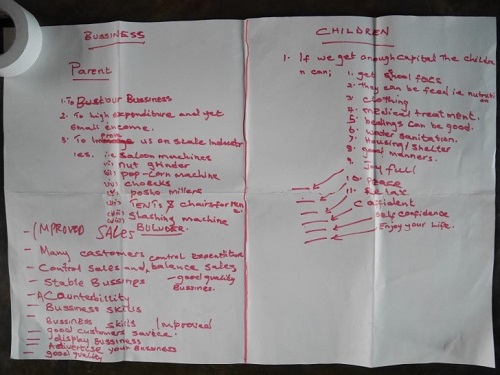 BUSSINESS
Parent
1. To Bust our Bussiness
2. To high expenditure and get
small encome.
3. To us on state Industr
ies. i.e saloon machines
ii) nut grinder
iii) pop-corn machine
posho millers
TENTS & chairs for ren
slashing machine
- IMPROVED SALES
- Many customers control Expentiture
- Control sales and balance sales
- Stable Bussines - good quality
Bussines.
- ACounterbillity
- Bussiness skills
- Bussiness skills Improved
- good customers
- display Bussiness
- Advertise your Bussiness
- good quality
CHILDREN
1. If we get enough capital The childre
n can; 1. get school fees
2. They can be feed i.e nutrition
3. clothing
4. medical treatment.
5. bedings can be good.
6. water sanitation.
7. Housing/shelter
8. good manners.
9. Joy full
10. peace
11. RELAX
Cofident
self confidence
Enjoy your life.